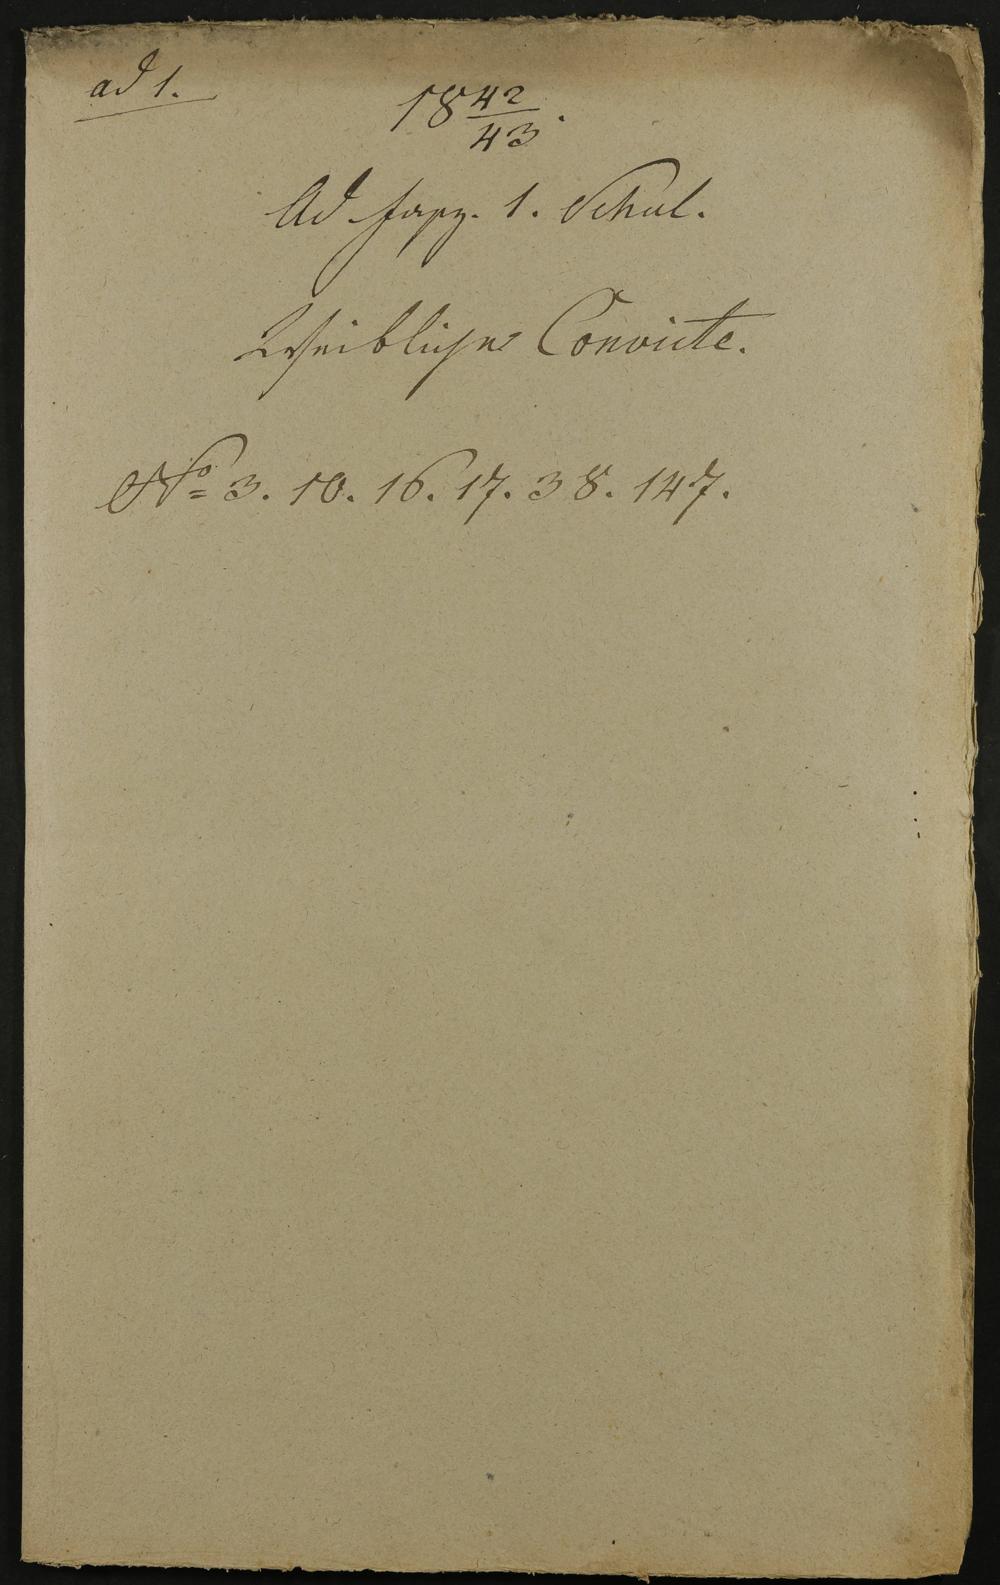 ad 1.
18 42/43.
Ad fasz. 1. Schul.
Weibliche Convicte.
No 3. 10. 16. 17. 38. 147.